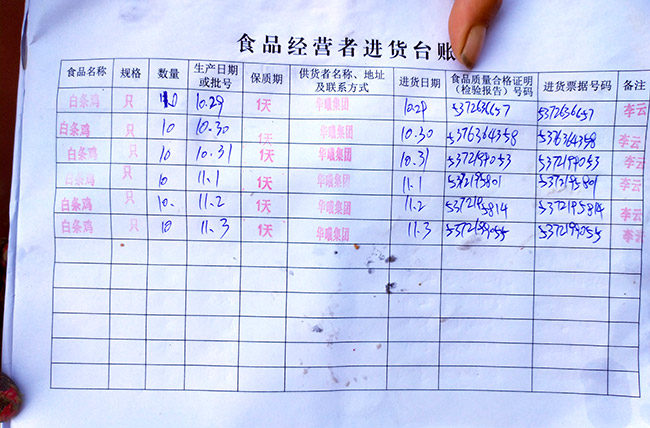 食品经营者进货台账
食品名称 规格 数量 生产日期或批号 保质期 供货者名称、地址及联系方式 进货日期 食品质量合格证明(检验报告)号码 进货票据号码 备注
白条鸡 只 10 10.29 1天 华曦集团 10.29 5372636657 5372636657 李云
白条鸡 只 10 10.30 1天 华曦集团 10.30 5376364358 5376364358 李云
白条鸡 只 10 10.31 1天 华曦集团 10.31 5372199053 5372199053 李云
白条鸡 只 10 11.1 1天 华曦集团 11.1 5372195801 5372195801 李云
白条鸡 只 10 11.2 1天 华曦集团 11.2 5372195814 5372195814 李云
白条鸡 只 10 11.3 1天 华曦集团 11.3 5372199055 李云